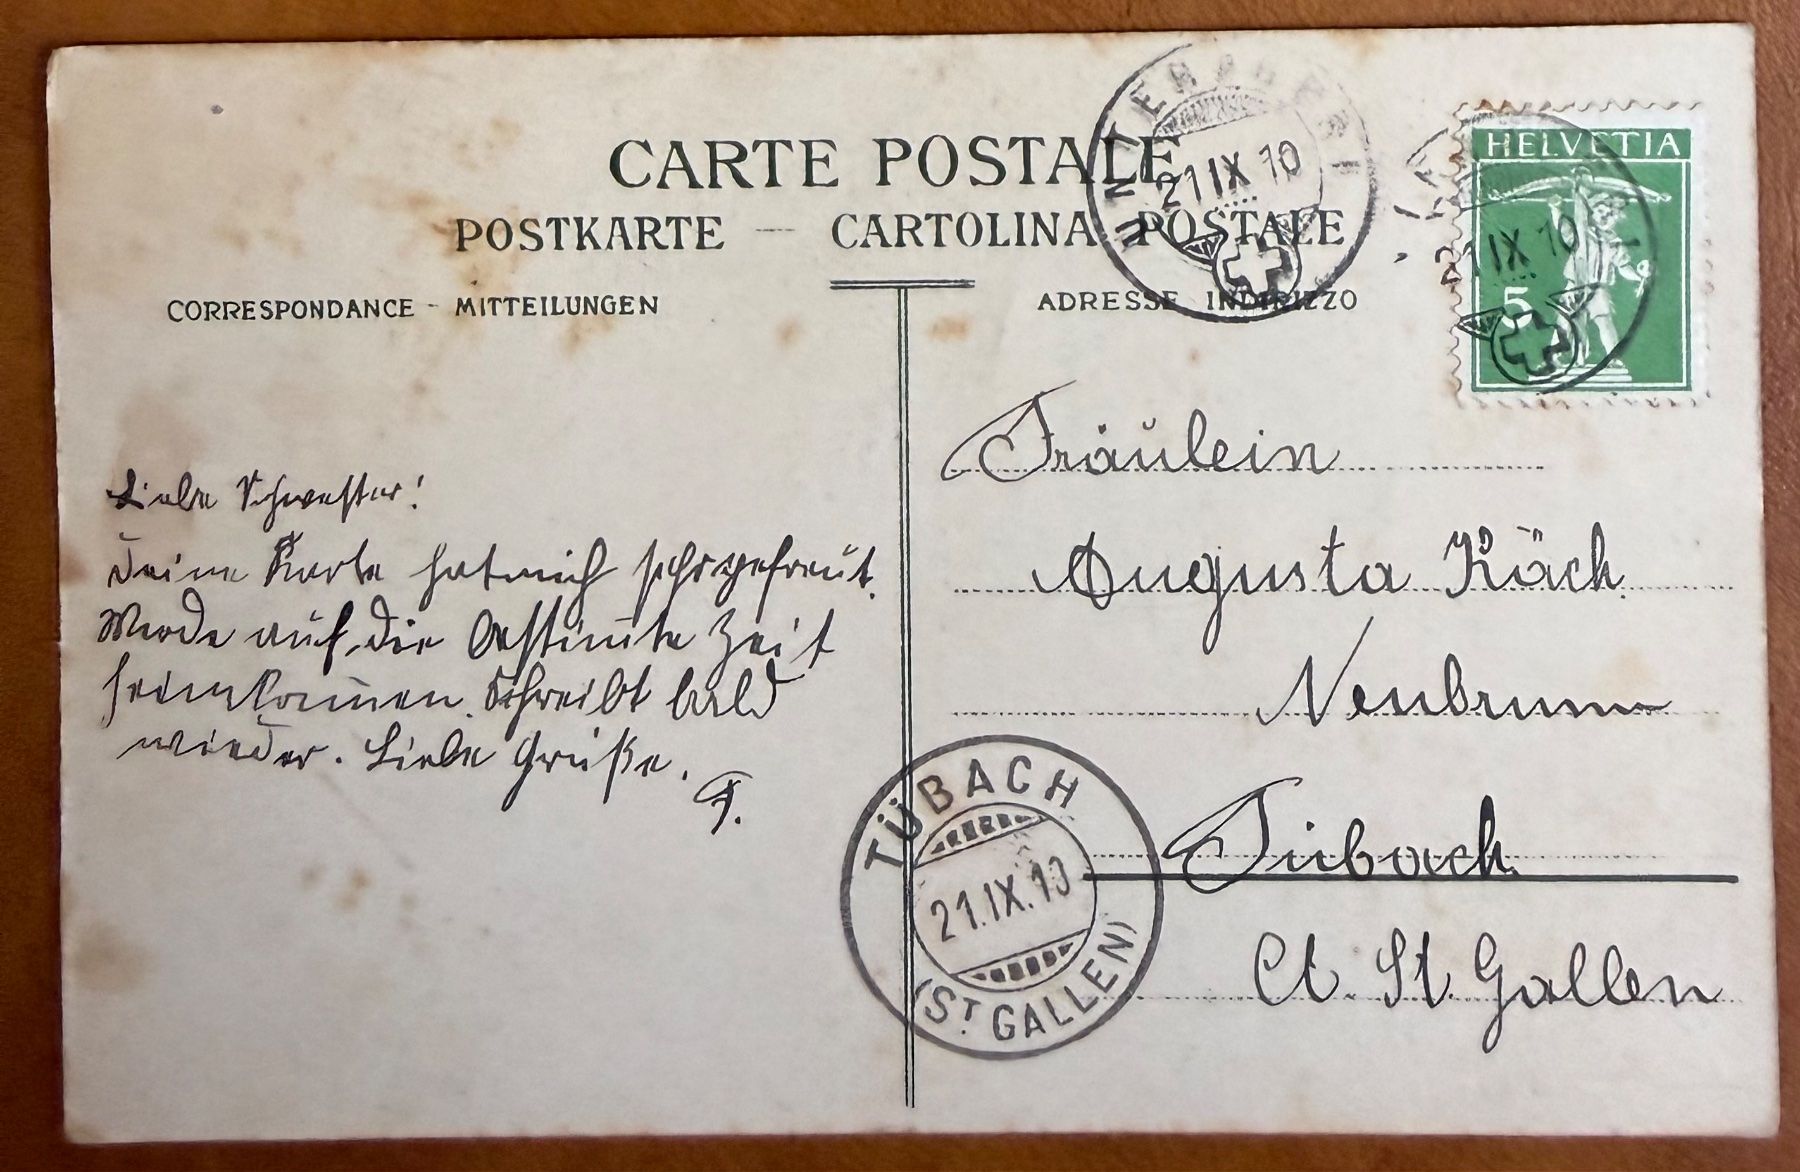 CARTE POSTALE
POSTKARTE — CARTOLINA POSTALE
CORRESPONDANCE - MITTEILUNGEN
ADRESSE INDIRIZZO
21 IX 10
HELVETIA
21 IX 10
5
Liebe Schwester!
Deine Karte hat mich sehr gefreut.
Werde auf die bestimte Zeit
heimkommen. Schreibt bald
wieder. Liebe Grüße.
Fräulein
Augusta Käch
Neubrunn
Tübach
Ct. St. Gallen
TÜBACH
21.IX.10
(ST. GALLEN)